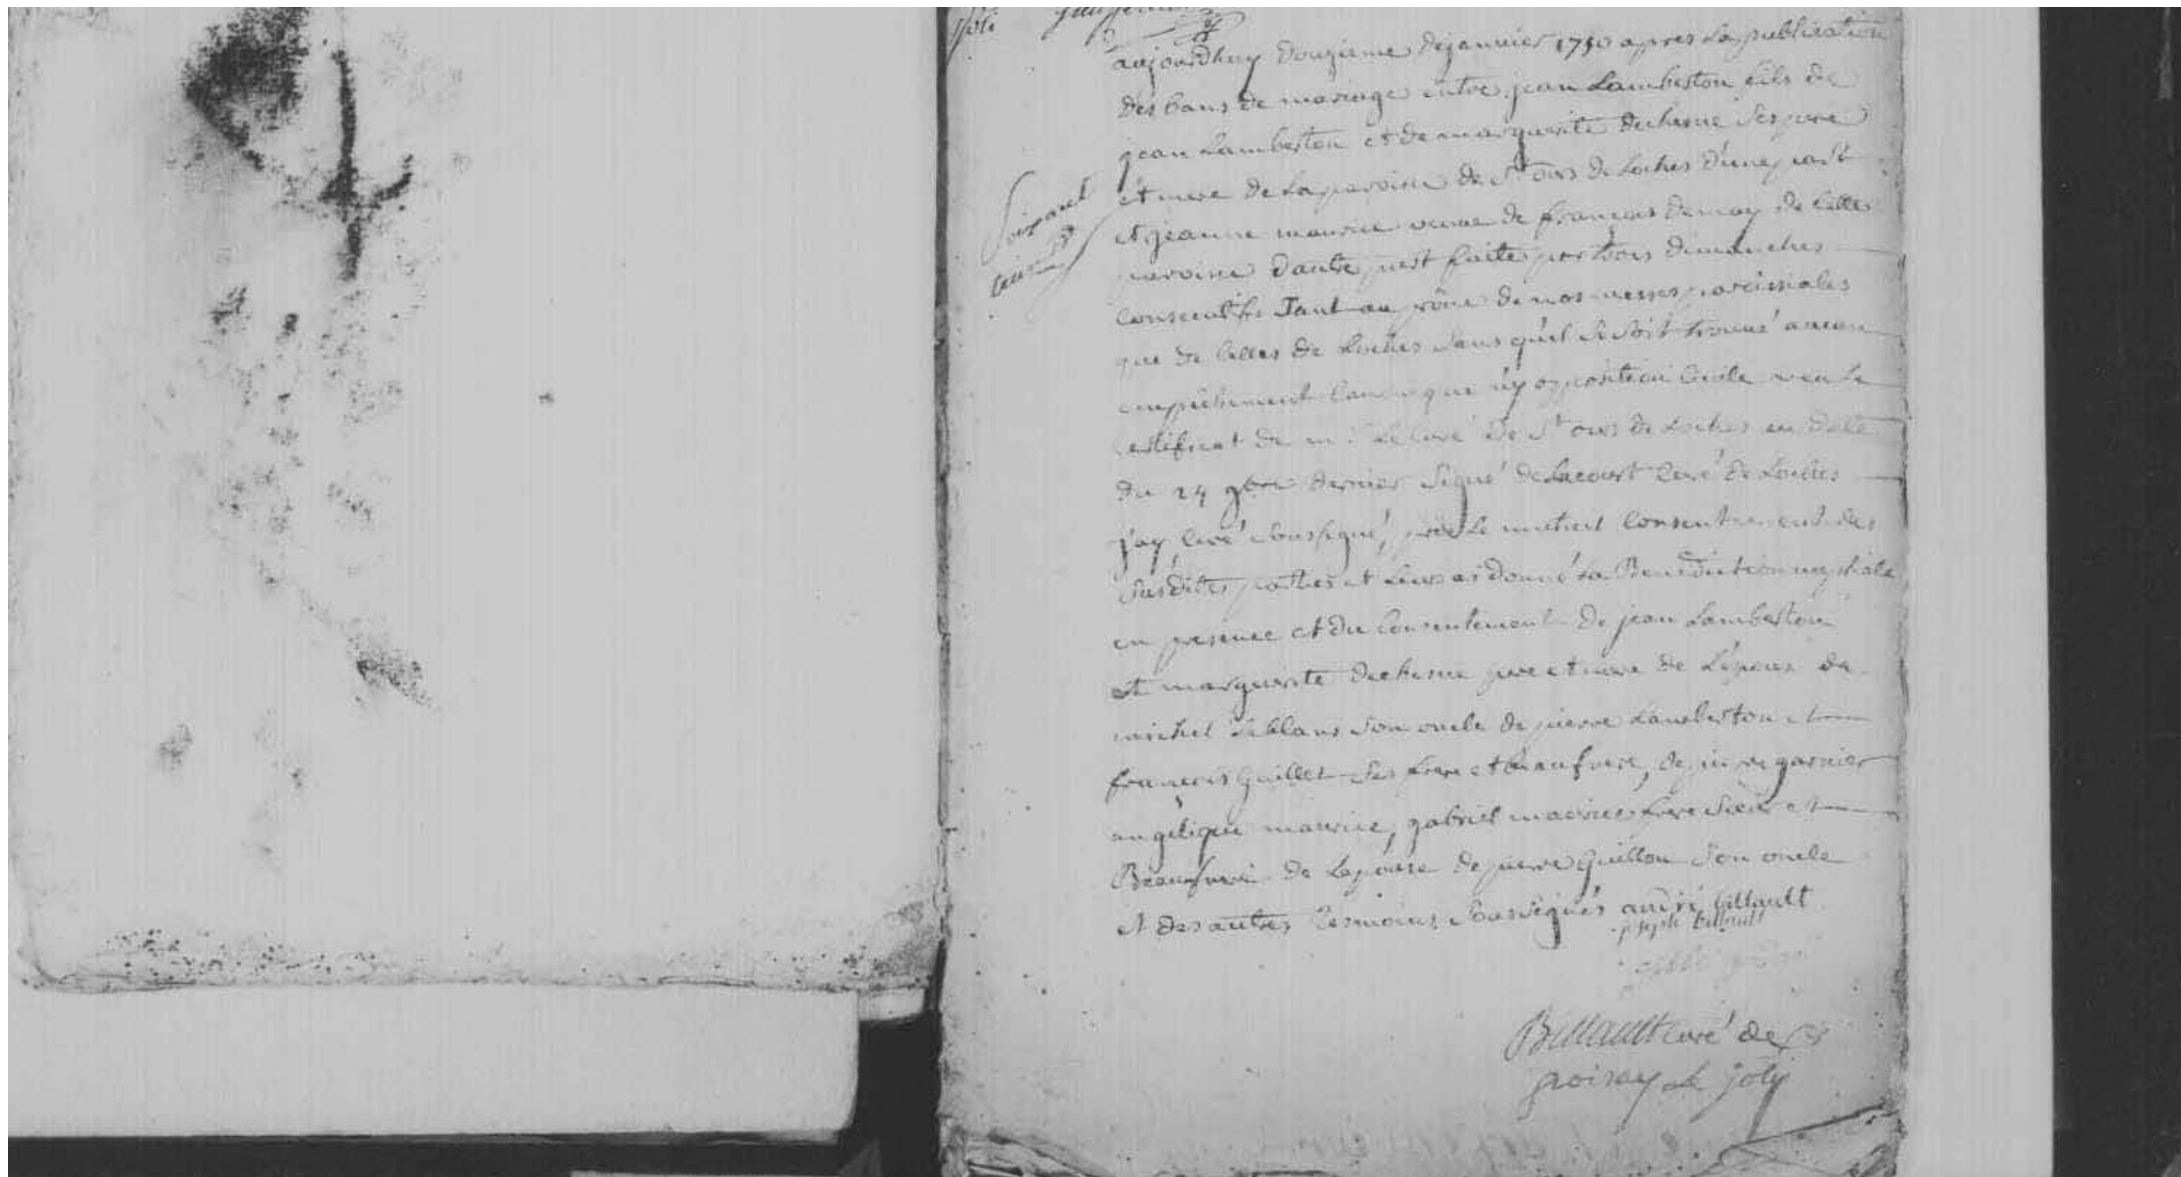 aujourdhuy douzieme dejanvier 1750 apres La publication
des bans de mariage entre jean Lamberton fils de
jean Lamberton et de marguerite duchesne Ses pere
et mere de La paroisse de St ours de Loches d'une part
et jeanne maurice veuve de françois demay de cette
paroisse dautre part faite par trois dimanches
consecutifs Tant au prône de nos messes paroissiales
que de celles de Loches Sans qu'il Se Soit trouvé aucun
empêchement canonique ny opposition civile veu Le
certificat de mr Le curé de St ours de Loches en datte
du 24 9bre dernier Signé deLacourt curé de Loches
j'ay, curé Soussigné, pris Le mutuel consentement des
Susdites parties et Leur ai donné La Benediction nuptiale
en presence et du consentement de jean Lamberton
et marguerite duchesne pere et mere de L'epoux de
michel Leblanc Son oncle de pierre Lamberton et
françois Guillet Ses frere et beaufrere, de pierre garnier
angelique maurice, gabriel maurice frere Sœur et
Beaufrere de Lepouse de pierre Guillon Son oncle
et des autres Tesmoins Soussignés andré billault
joseph billault
Billault curé de
groisay Le joly